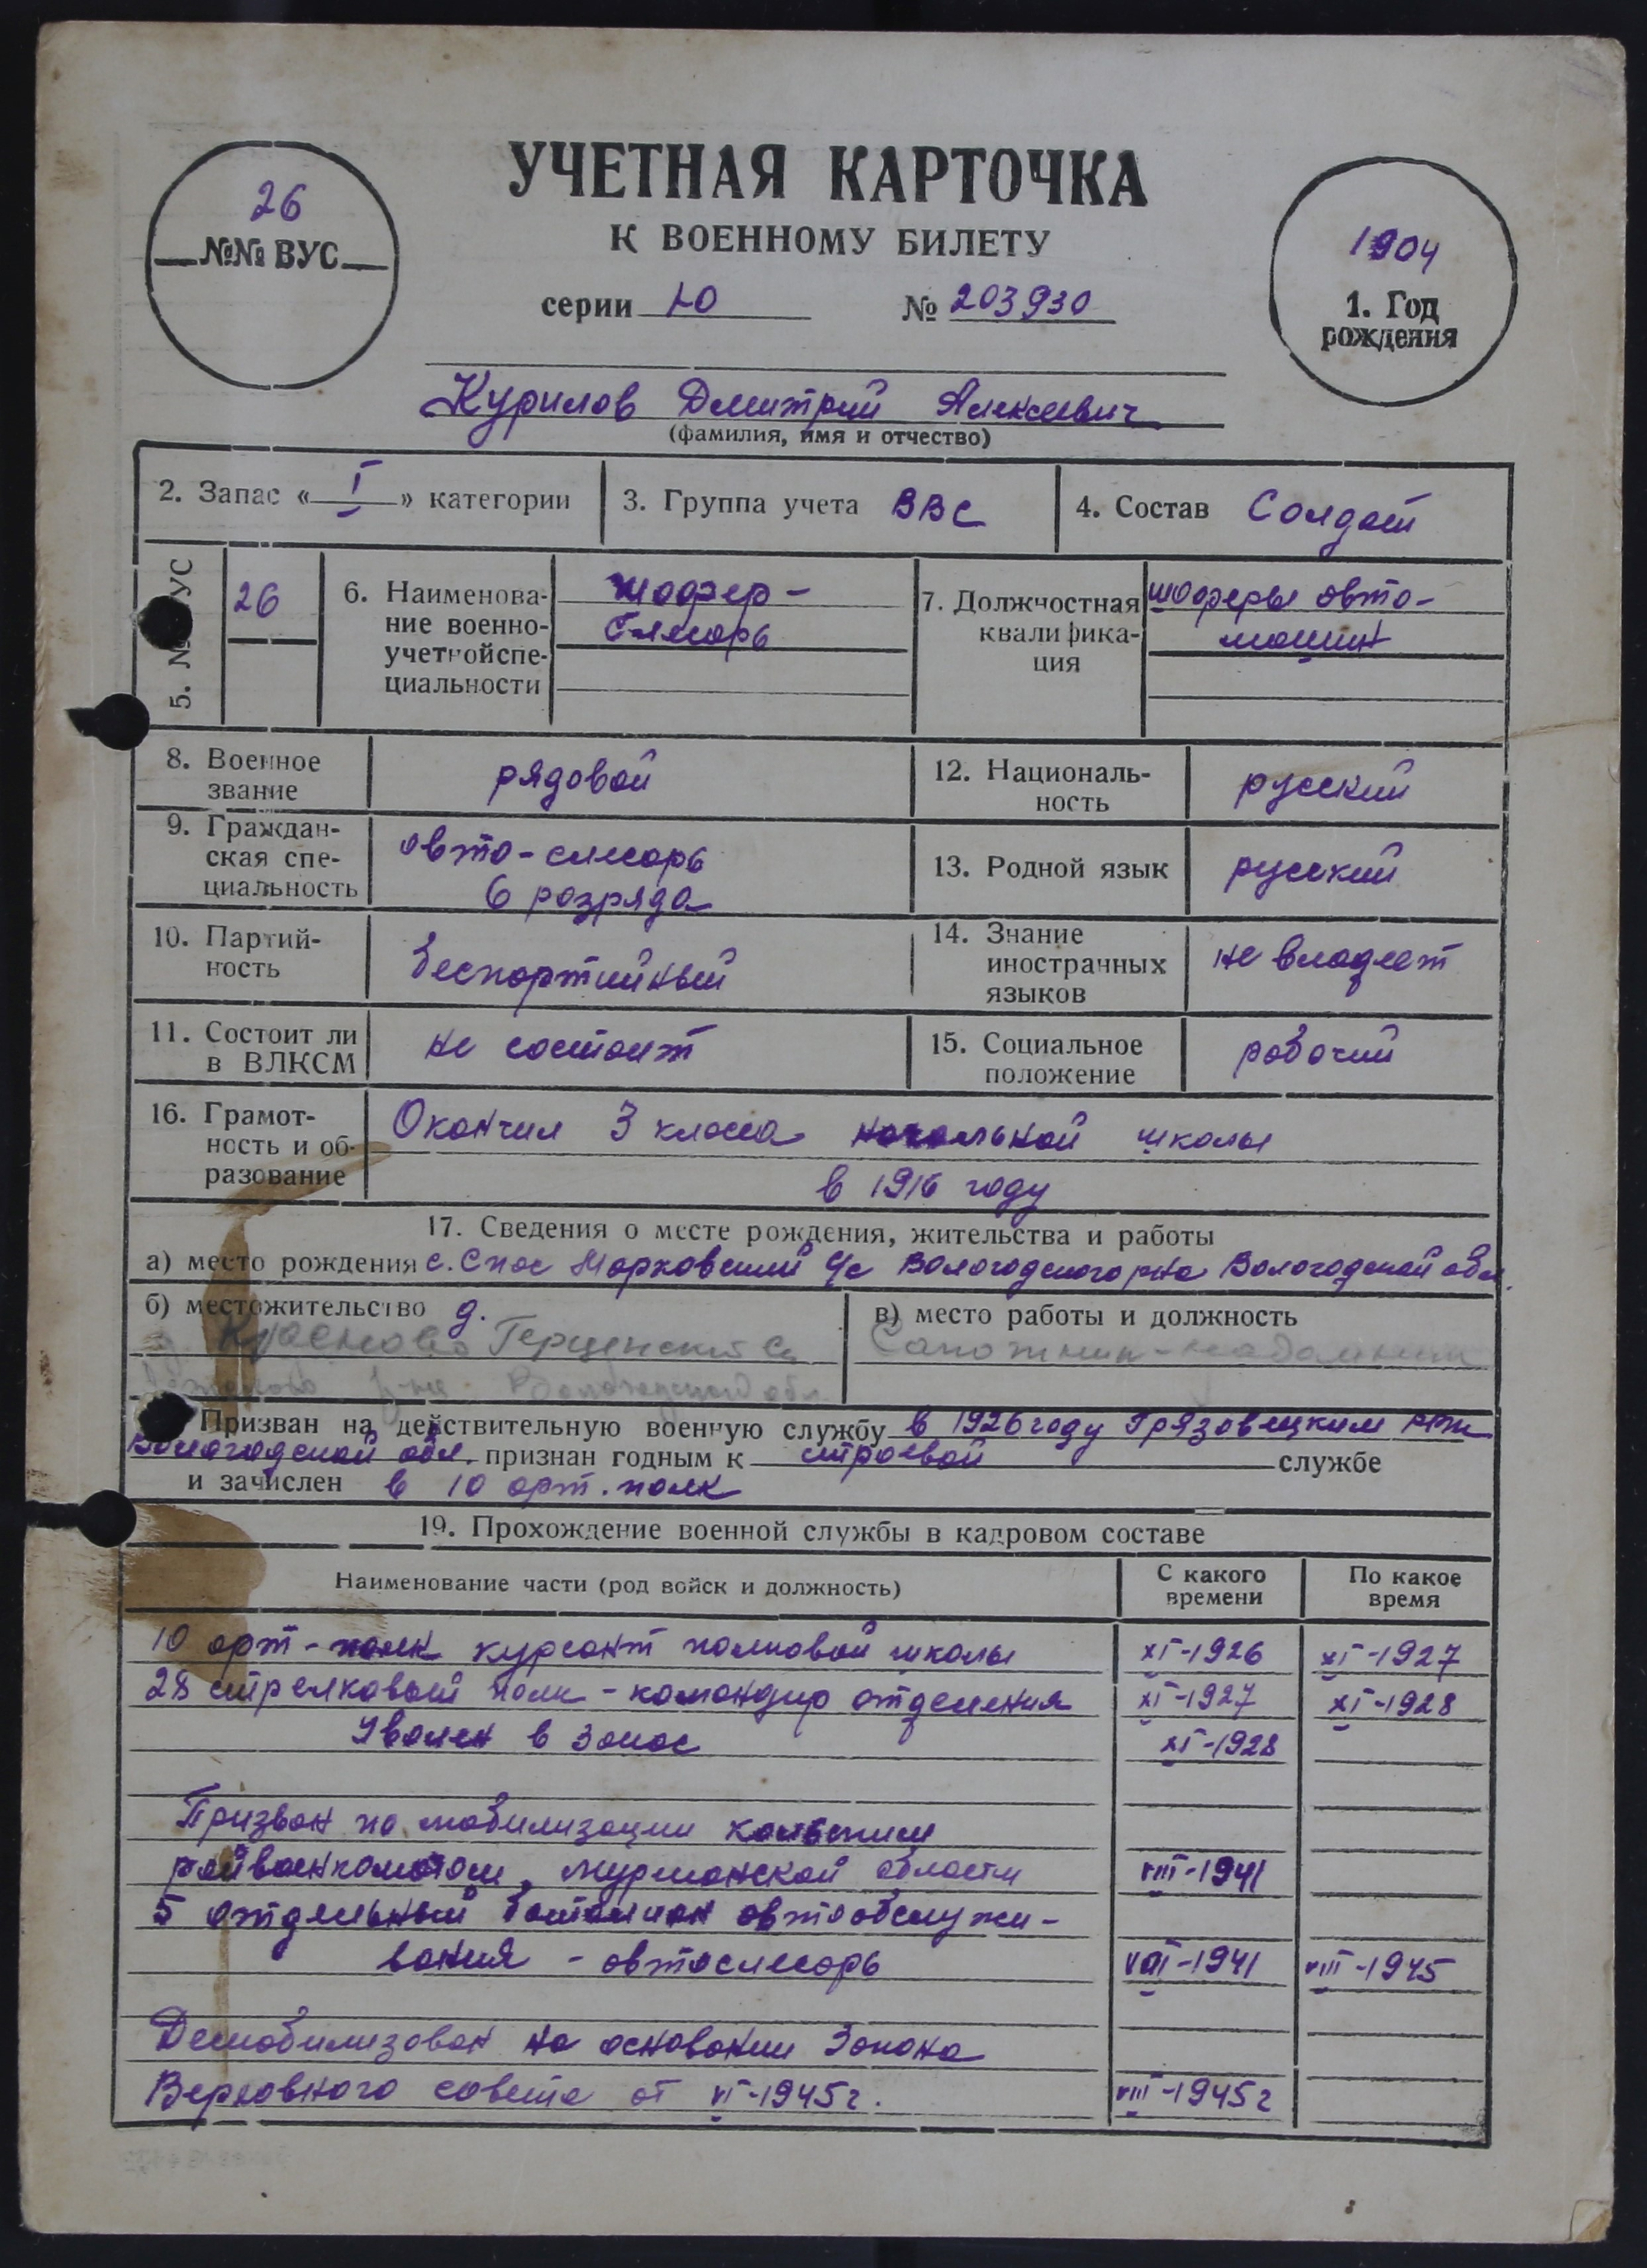 УЧЕТНАЯ КАРТОЧКА
К ВОЕННОМУ БИЛЕТУ
26
№№ ВУС
серии Ю № 203930
1904
1. Год
рождения
Курилов Дмитрий Алексеевич
(фамилия, имя и отчество)
2. Запас « I » категории
3. Группа учета ВВС
4. Состав Солдат
5. № ВУС
26
6. Наименова-
ние военно-
учетной спе-
циальности
шофер -
слесарь
7. Должностная
квалифика-
ция
шоферы авто-
машин
8. Военное
звание
рядовой
12. Националь-
ность
русский
9. Граждан-
ская спе-
циальность
авто-слесарь
6 разряда
13. Родной язык
русский
10. Партий-
ность
беспартийный
14. Знание
иностранных
языков
не владеет
11. Состоит ли
в ВЛКСМ
не состоит
15. Социальное
положение
рабочий
16. Грамот-
ность и об-
разование
Окончил 3 класса начальной школы
в 1916 году
17. Сведения о месте рождения, жительства и работы
а) место рождения с. Спас Марковский с/с Вологодского р-на Вологодской обл.
б) местожительство д.
Герценский с/с
р-на Вологодской обл.
в) место работы и должность
Сапожник-надомник
Призван на действительную военную службу в 1926 году Грязовецким РВК
Вологодской обл. признан годным к строевой службе
и зачислен в 10 арт. полк
19. Прохождение военной службы в кадровом составе
Наименование части (род войск и должность)
С какого
времени
По какое
время
10 арт-полк курсант полковой школы XI-1926 XI-1927
28 стрелковый полк - командир отделения XI-1927 XI-1928
Уволен в запас XI-1928
Призван по мобилизации Кольским
райвоенкоматом, Мурманской области VIII-1941
5 отдельный батальон автообслужи-
вания - автослесарь VIII-1941 VIII-1945
Демобилизован на основании Закона
Верховного совета от VI-1945 г. VIII-1945 г